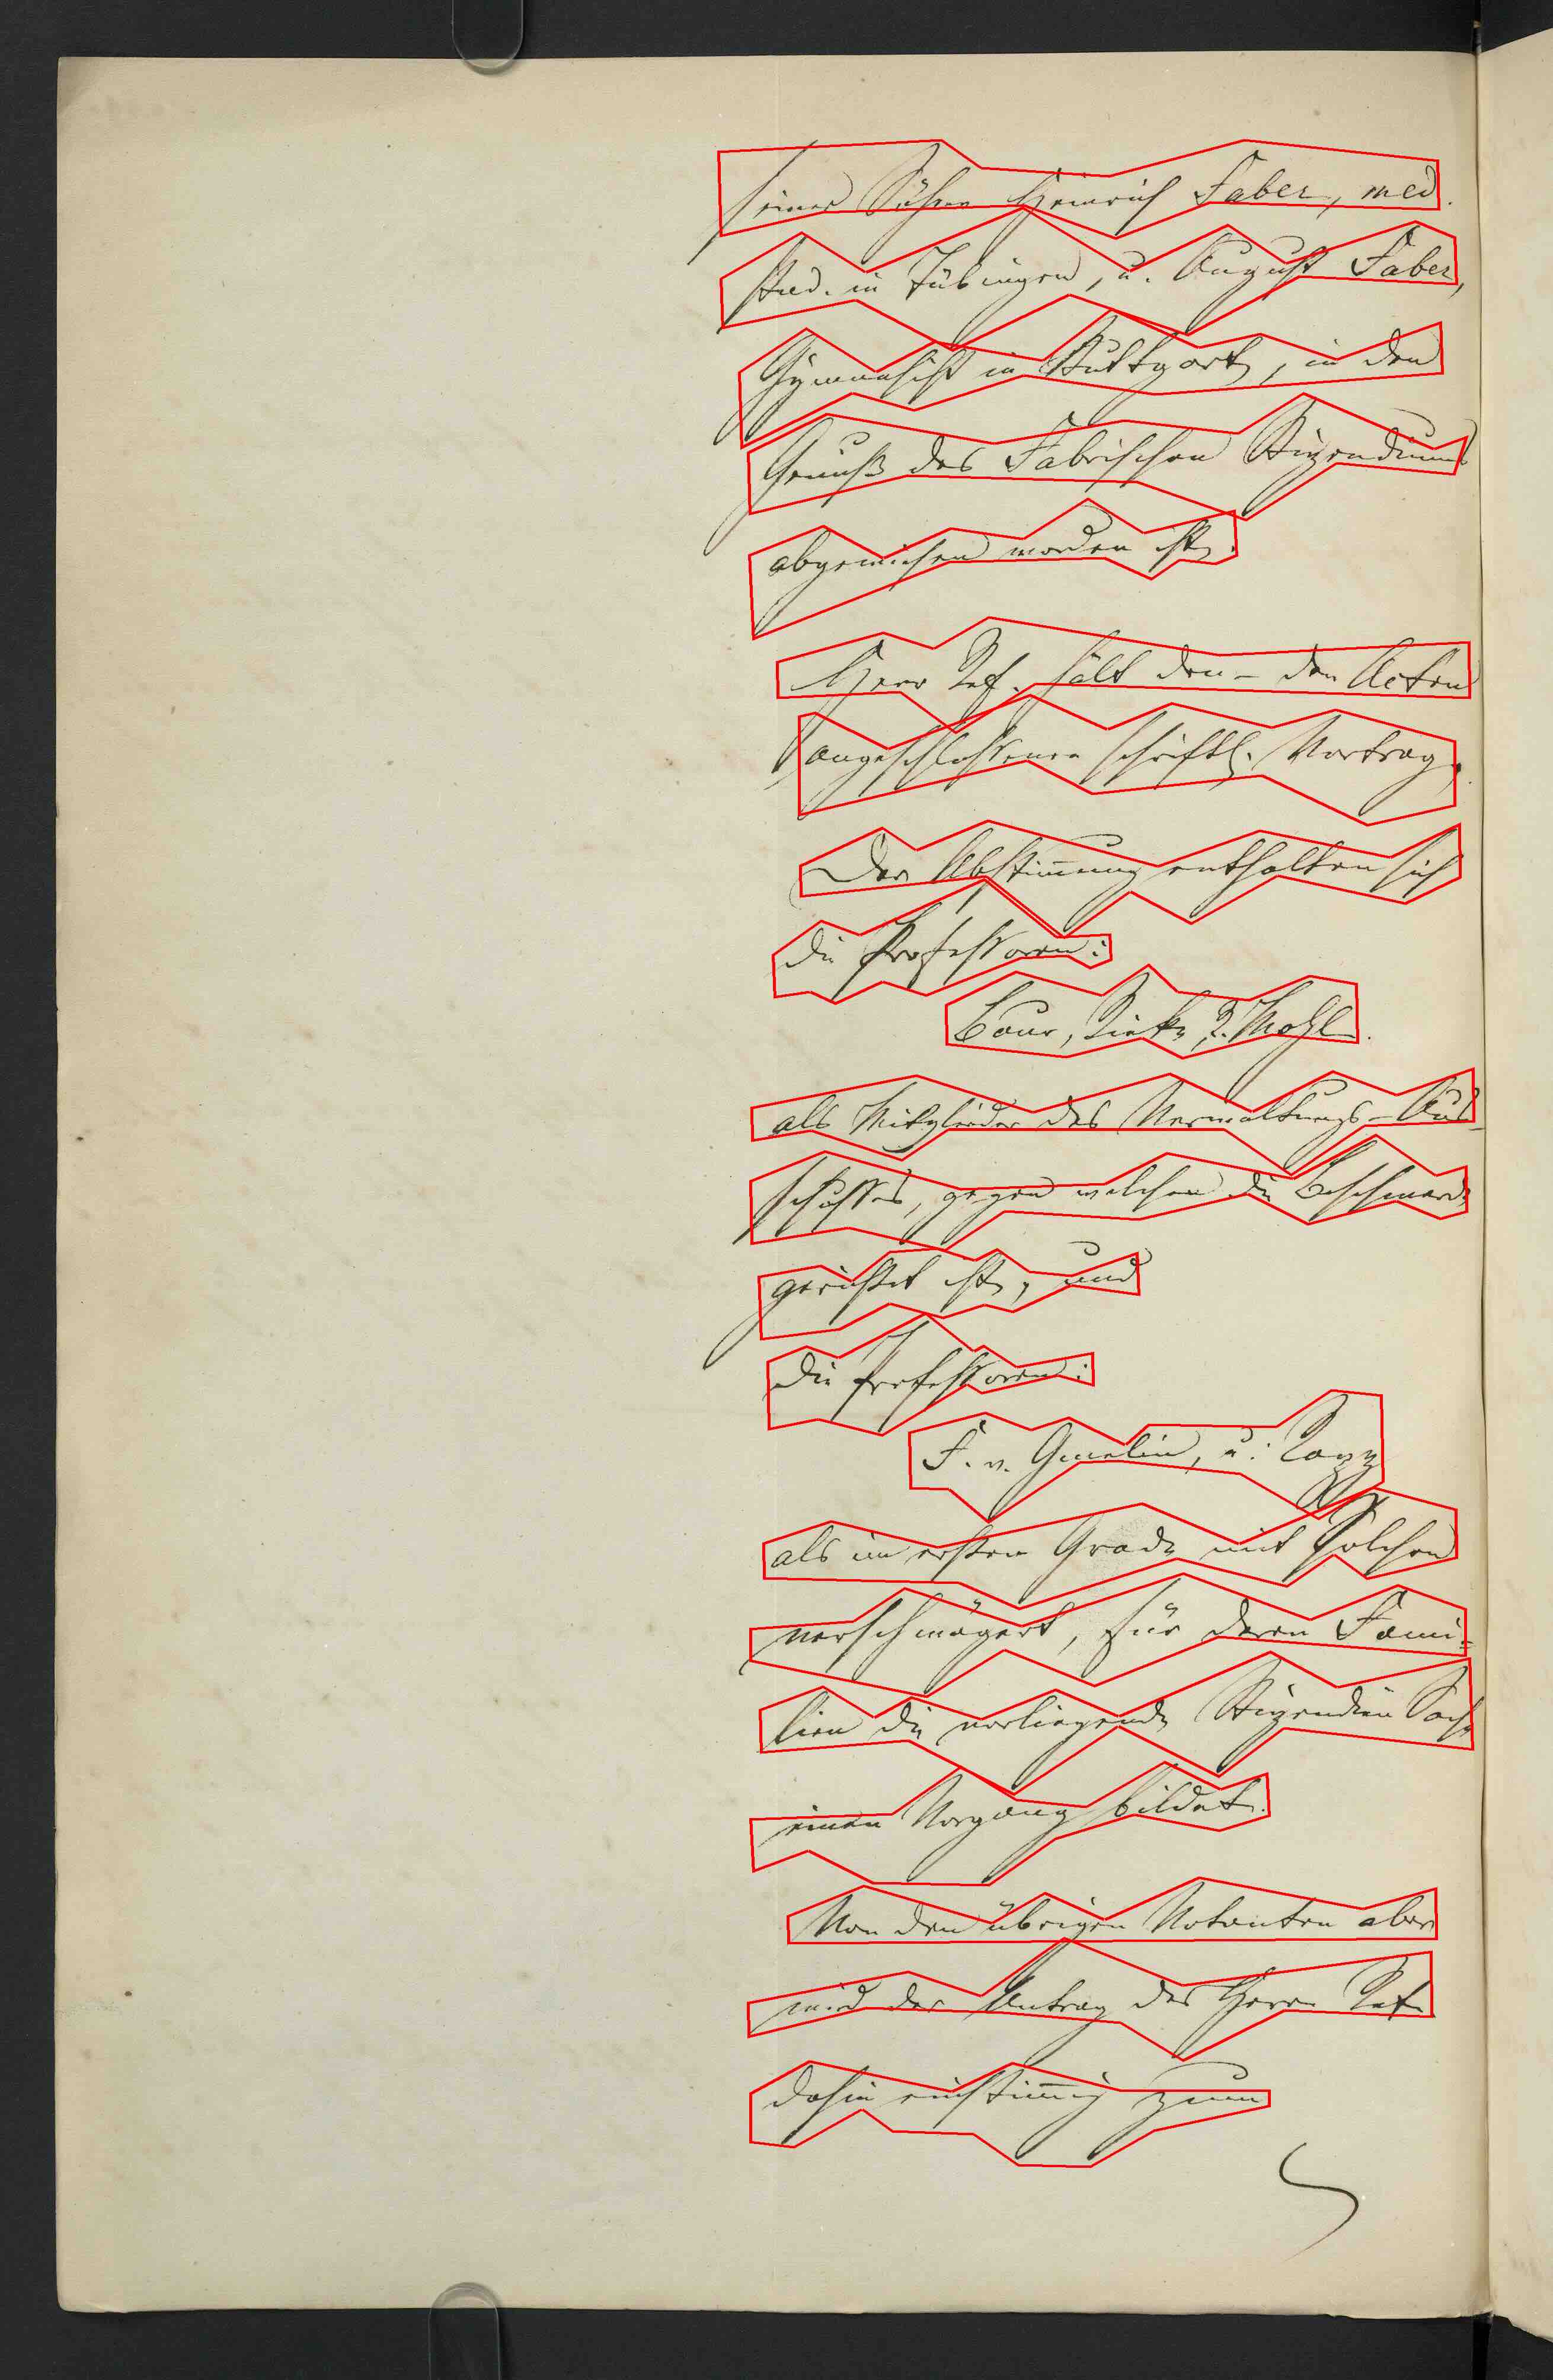 seiner Söhne Heinrich Faber, med.
stud. in Tübingen, u. August Faber,
Gymnasist in Stuttgart, in den
Genuß des Fabrischen Stipendiums
abgewiesen worden ist.
Herr Ref. hält den - den Acten
angeschlossenen schriftl. Vortrag.
Der Abstimmung enthalten sich
die Professoren:
Baur, R. Mohl.
als Mitglieder des Verwaltungs-Aus-
schusses, gegen welchen die Beschwerde
gerichtet ist, und
die Professoren:
F. v. Gmelin, u.
als im ersten Grade mit Solchen
verschwägert, für deren Fami-
lien die vorliegende Stipendien Sache
einen Vorgang bildet.
Von den übrigen Votanten aber
wird der Antrag des Herrn Ref.
dahin einstimmig zum